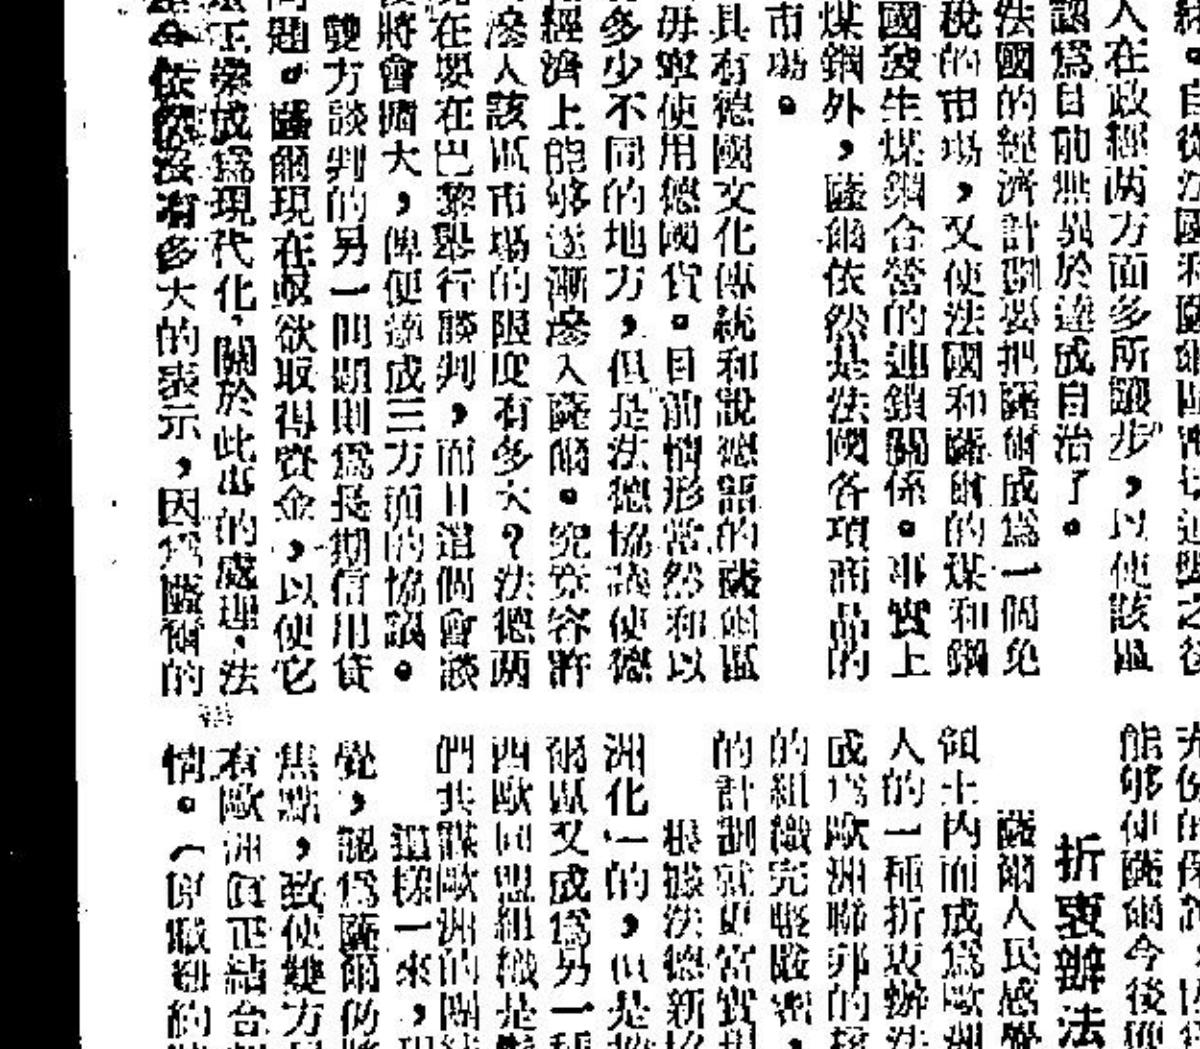 人在政經两方面多所讓步，以使該區
認為目前無異於達成自治了。
法國的經濟計劃要把薩爾成為一個免
稅的市場，又使法國和薩爾的煤和鋼
國發生煤鋼合營的連鎖關係。事實上
煤鋼外，薩爾依然是法國各項商品的
市場。
具有德國文化傳統和說德語的薩爾區
毋寧使用德國貨。目前情形當然和以
多少不同的地方，但是法德協議使德
經濟上能够逐漸滲入薩爾。究竟容許
滲入該區市場的限度有多大？法德两
在要在巴黎舉行談判，而且這個會談
將會擴大，俾便達成三方面的協議。
雙方談判的另一問題則為長期信用貸
問題。薩爾現在亟欲取得資金，以使它
正業成為現代化，關於此事的處理，法
今依然沒有多大的表示，因為薩爾的
能够使薩爾今後
折衷辦法
薩爾人民感覺
領土内而成為歐洲
人的一種折衷辦法
成為歐洲聯邦的
的組織完整嚴密，
的計劃就更當實現
根據法德新協
洲化」的，但是
爾區又成為另一種
西歐同盟組織是
們共謀歐洲的團結
這樣一來，
覺，認為薩爾仍
焦點，致使雙方
有歐洲真正結合
情。（原載紐約